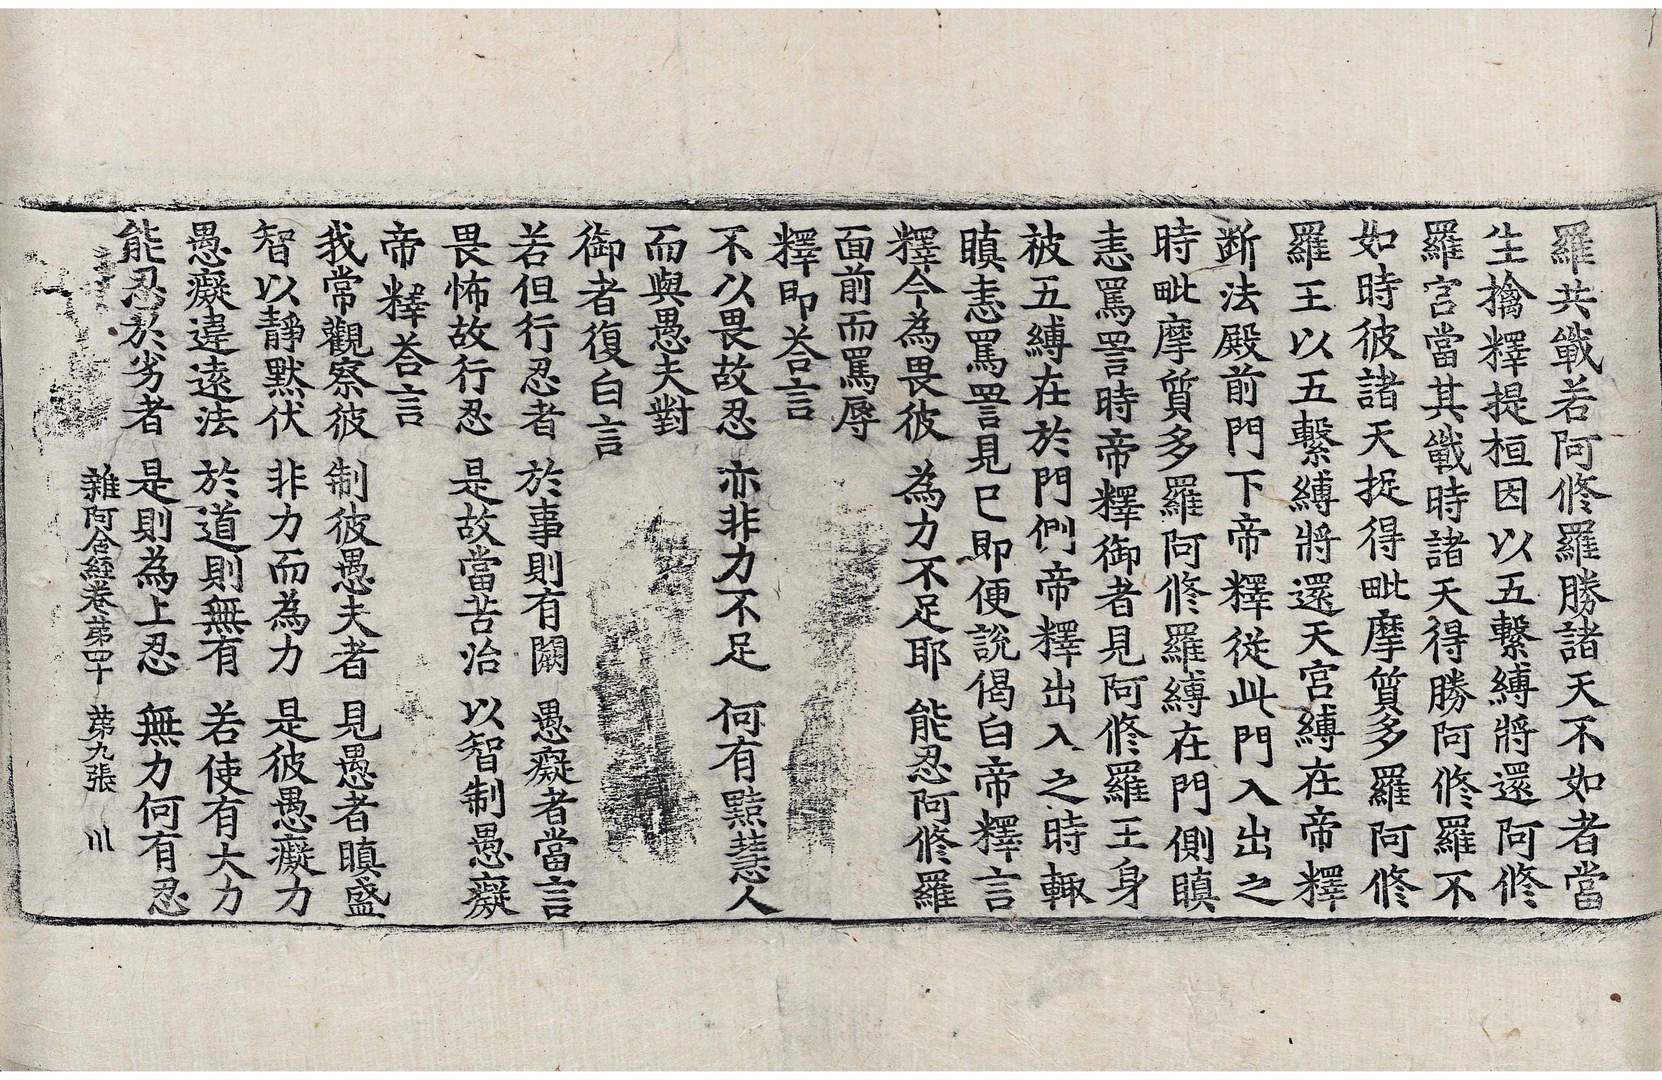 羅共戰若阿修羅勝諸天不如者當
生擒釋提桓因以五繫縛將還阿修
羅宮當其戰時諸天得勝阿修羅不
如時彼諸天捉得毗摩質多羅阿修
羅王以五繫縛將還天宮縛在帝釋
断法殿前門下帝釋從此門入出之
時毗摩質多羅阿修羅縛在門側瞋
恚罵詈時帝釋御者見阿修羅王身
被五縛在於門側帝釋出入之時輙
瞋恚罵詈見已即便說偈白帝釋言
釋今為畏彼 為力不足耶 能忍阿修羅
面前而罵辱
釋即荅言
不以畏故忍 亦非力不足 何有黠慧人
而與愚夫對
御者復白言
若但行忍者 於事則有闕 愚癡者當言
畏怖故行忍 是故當苦治 以智制愚癡
帝釋荅言
我常觀察彼 制彼愚夫者 見愚者瞋盛
智以靜默伏 非力而為力 是彼愚癡力
愚癡違遠法 於道則無有 若使有大力
能忍於劣者 是則為上忍 無力何有忍
雜阿含經卷苐四十 苐九張 川